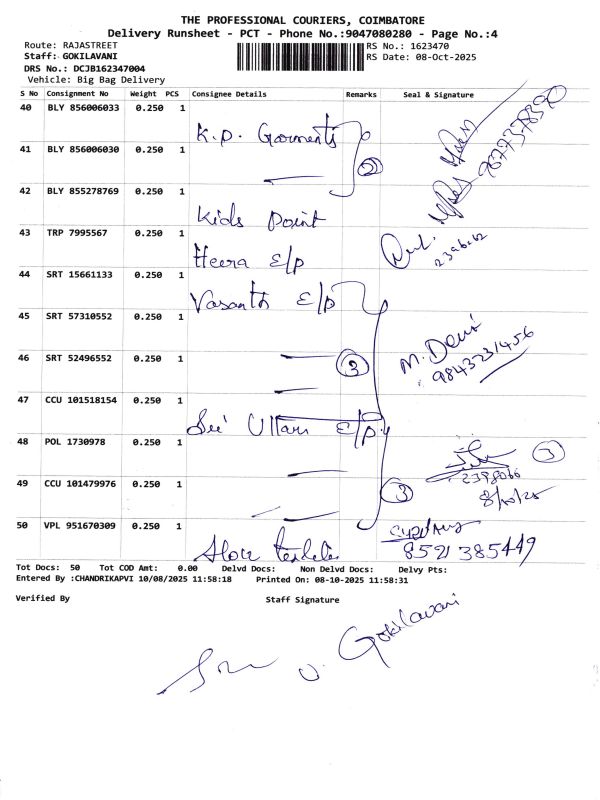 THE PROFESSIONAL COURIERS, COIMBATORE
Delivery Runsheet - PCT - Phone No.:9047080280 - Page No.:4
Route: RAJASTREET
RS No.: 1623470
Staff: GOKILAVANI
RS Date: 08-Oct-2025
DRS No.: DCJB162347004
Vehicle: Big Bag Delivery
S No Consignment No Weight PCS Consignee Details Remarks Seal & Signature
40 BLY 856006033 0.250 1
K.P. Garments
41 BLY 856006030 0.250 1
2
42 BLY 855278769 0.250 1
Kids Point
43 TRP 7995567 0.250 1
Heera E/P
44 SRT 15661133 0.250 1
Vasanth E/P
45 SRT 57310552 0.250 1
46 SRT 52496552 0.250 1
3
M. Devi
9843231456
47 CCU 101518154 0.250 1
Sri E/P
48 POL 1730978 0.250 1
3
49 CCU 101479976 0.250 1
3
8/10/25
50 VPL 951670309 0.250 1
8521385449
Tot Docs: 50 Tot COD Amt: 0.00 Delvd Docs: Non Delvd Docs: Delvy Pts:
Entered By :CHANDRIKAPVI 10/08/2025 11:58:18 Printed On: 08-10-2025 11:58:31
Verified By Staff Signature
Gokilavani